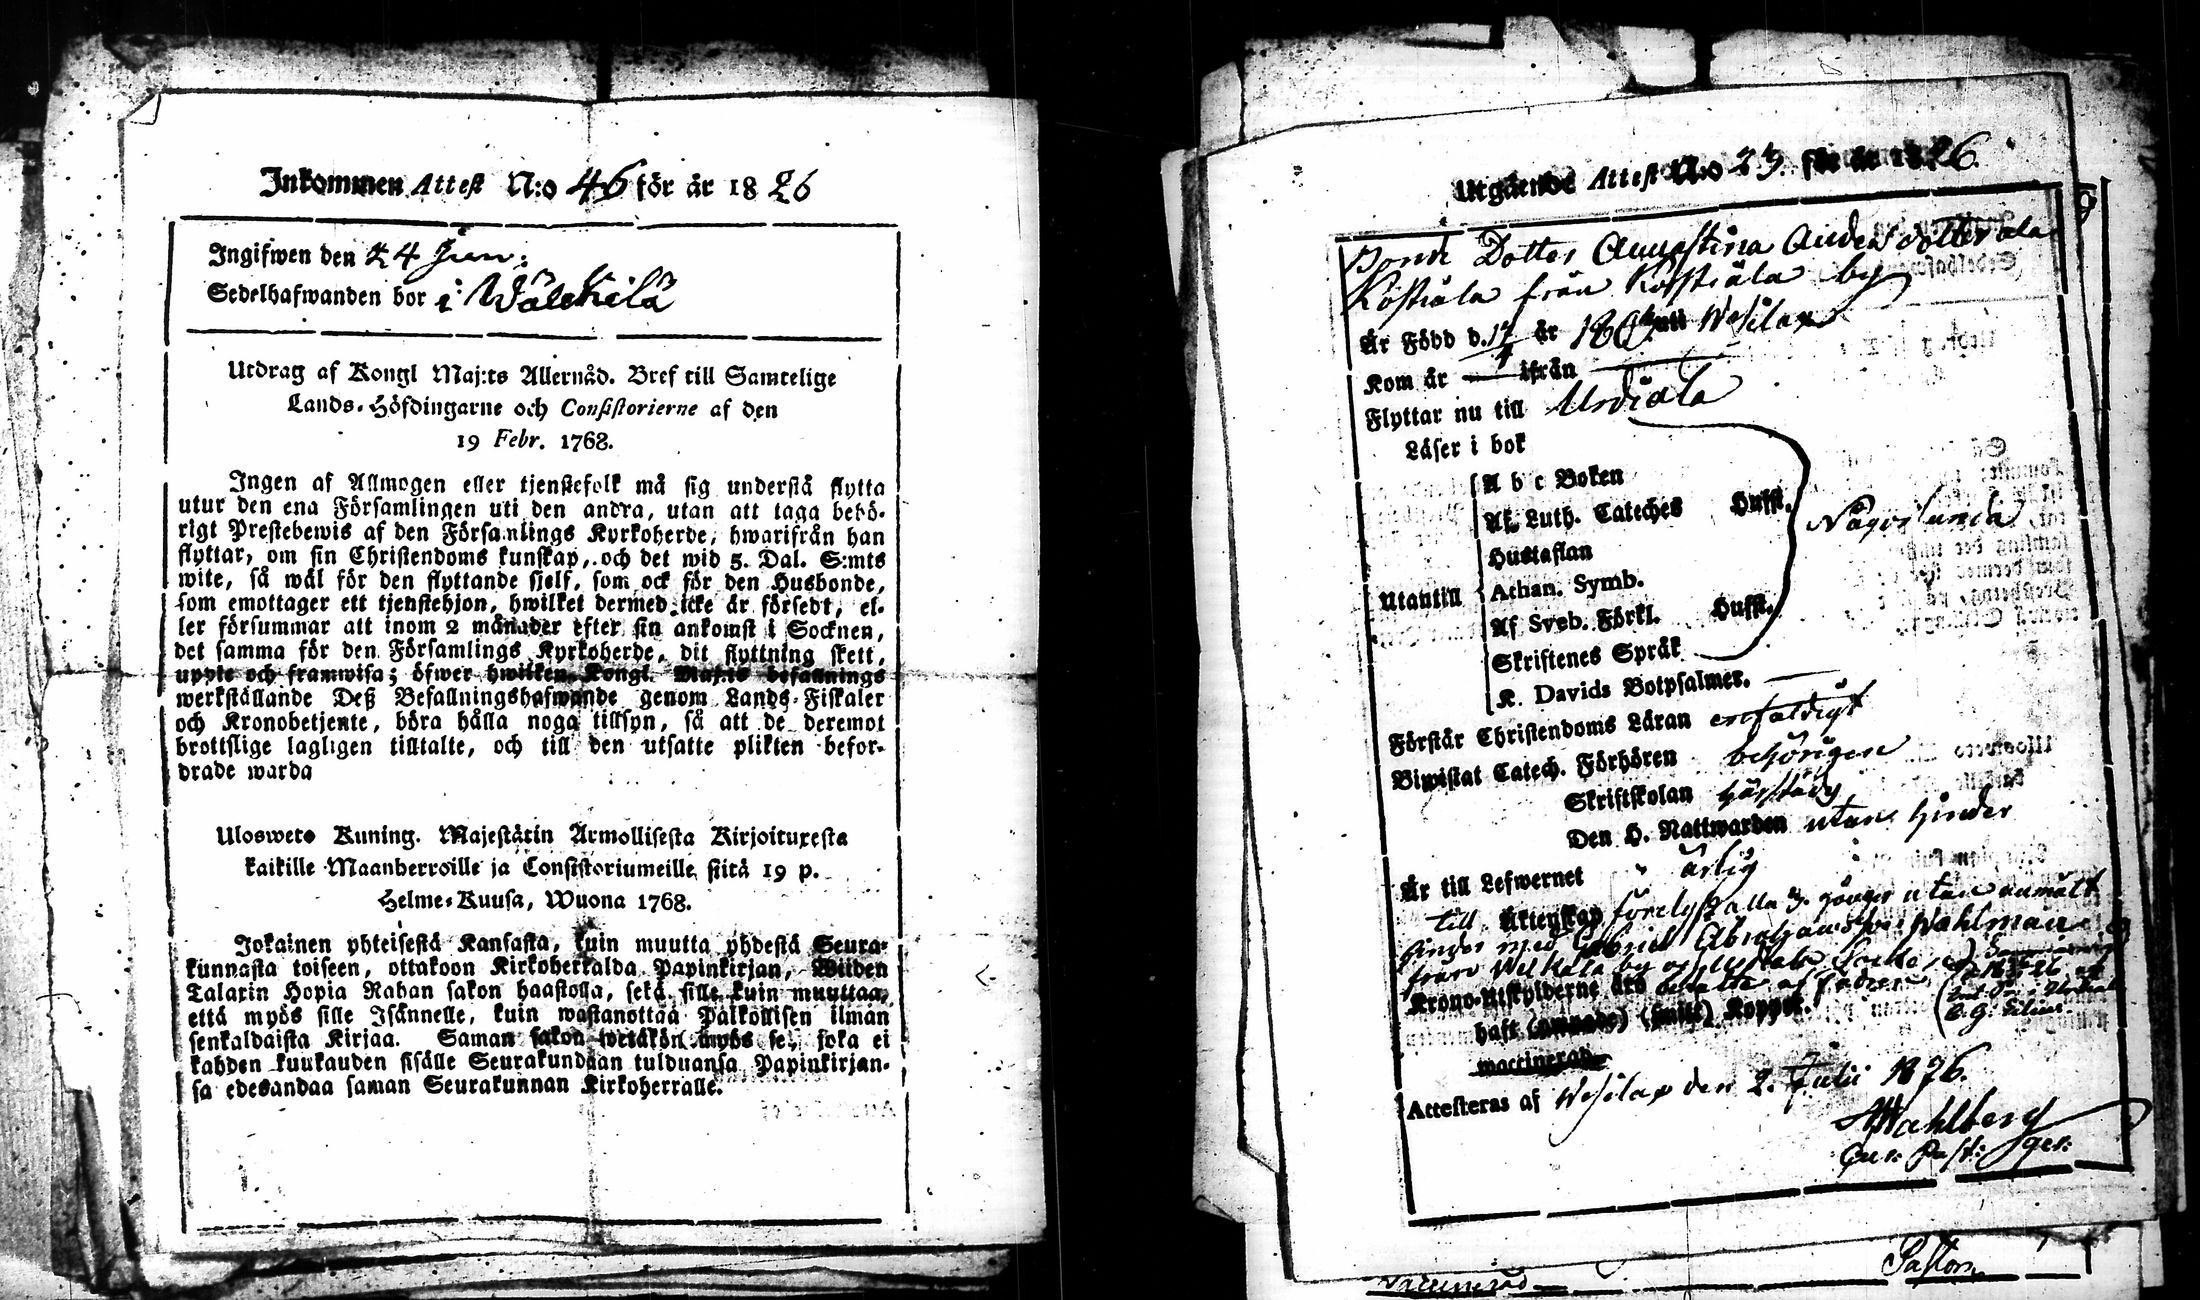 Inkommen Attest N:o 46 för år 1826
Ingifwen den 24 Jun:
Sedelhafwanden bor i Wälkilä
Utdrag af Kongl Maj:ts Allernåd. Bref till Samtelige
Lands-Höfdingarne och Consistorierne af den
19 Febr. 1768.
Ingen af Allmogen eller tjenstefolk må sig understå flytta
utur den ena Församlingen uti den andra, utan att taga behö-
rigt Prestebewis af den Församlings Kyrkoherde, hwarifrån han
flyttar, om sin Christendoms kunskap, och det wid 5. Dal. S:mts
wite, så wäl för den flyttande sjelf, som ock för den Husbonde,
som emottager ett tjenstehjon, hwilket dermed icke är försedt, el-
ler försummar att inom 2 månader efter sin ankomst i Socknen,
det samma för den Församlings Kyrkoherde, dit flyttning skett,
uppte och framwisa; öfwer hwilken Kongl. Maj:ts befallnings
werkställande Deß Befallningshafwande genom Lands-Fiskaler
och Kronobetjente, böra hålla noga tillsyn, så att de deremot
brottslige lagligen tilltalte, och till den utsatte plikten befor-
drade warda
Uloswete Kuning. Majestätin Armollisesta Kirjoituxesta
kaikille Maanherroille ja Consistoriumeille siitä 19 p.
Helme-Kuusa, Wuona 1768.
Jokainen yhteisestä Kansasta, kuin muutta yhdestä Seura-
kunnasta toiseen, ottakoon Kirkoherralda Papinkirjan, Wiiden
Talarin Hopia Rahan sakon haastolla, sekä sille kuin muuttaa,
että myös sille Isännelle, kuin wastanottaa Palkollisen ilman
senkaldaista Kirjaa. Saman sakon wetäkön myös se, joka ei
kahden kuukauden sisälle Seurakundaan tulduansa Papinkirjan-
sa edesandaa saman Seurakunnan Kirkoherralle.
Utgående Attest N:o 23. för år 1826.
Bonde Dotter Annastina Anders dotter ala
Köstiälä från Köstiälä by
Är Född d. 17/4 år 180 uti Wesilax
Kom år — ifrån —
Flyttar nu till Urdiala
Läser i bok
A b c Boken
Af Luth. Cateches Hufst.
Hustaflan
Någorlunda
Utantill
Athan. Symb.
Af Sveb. Förkl. Hufst.
Skriftenes Språk
K. Davids Botpsalmer. —
Förstår Christendoms Läran enfaldigt
Biwistat Catech. Förhören behörigen
Skriftskolan
Den H. Nattwarden utan hinder
Är till Lefwernet ärlig
till Äktenskap förelyst alla 3. gånger utan anmält
hinder med Gabriel Abrahamsson Wahlman
från Welkälä by
Krono-Utskylderne äro betalte af fadren
haft (amnade) (smitt) Koppor.
waccinerad
Attesteras af Wesilax den 2. Julii 1826.
Wahlberg
Past:
Pastor